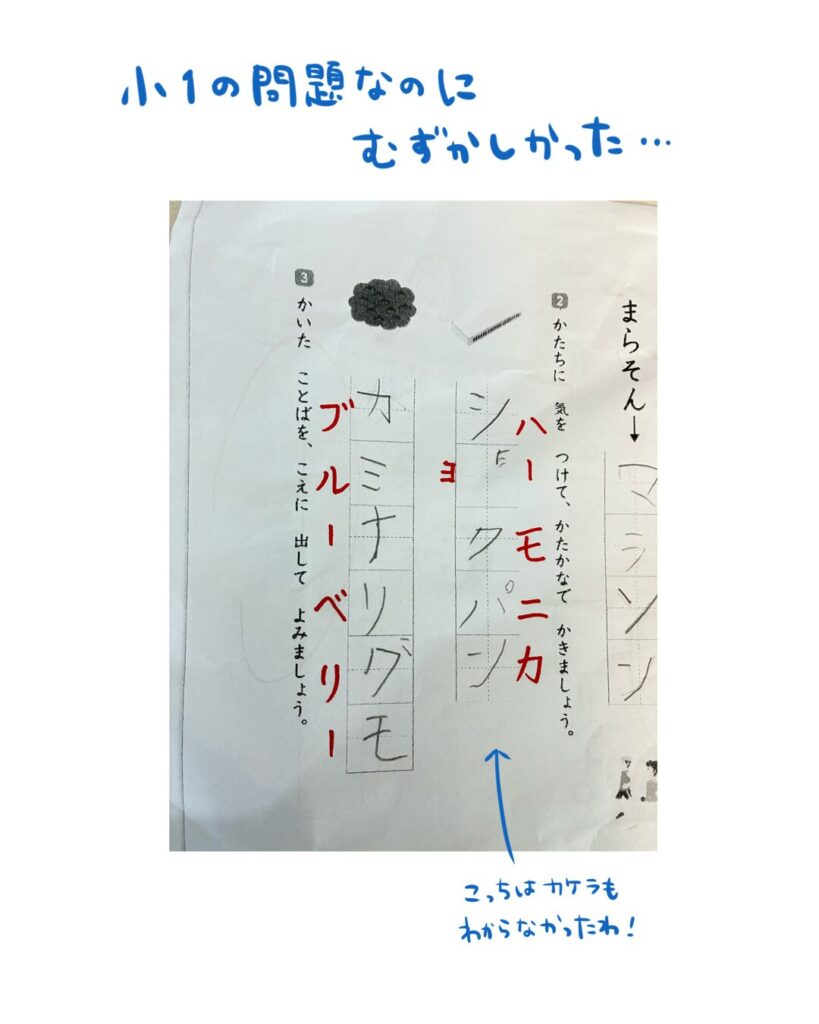 小1の問題なのに
むずかしかった…
まらそん↓
マラソン
2 かたちに 気を つけて、かたかなで かきましょう。
ハーモニカ
ショクパン
ヨ
カミナリグモ
ブルーベリー
3 かいた ことばを、こえに 出して よみましょう。
こっちはカケラも
わからなかったわ!